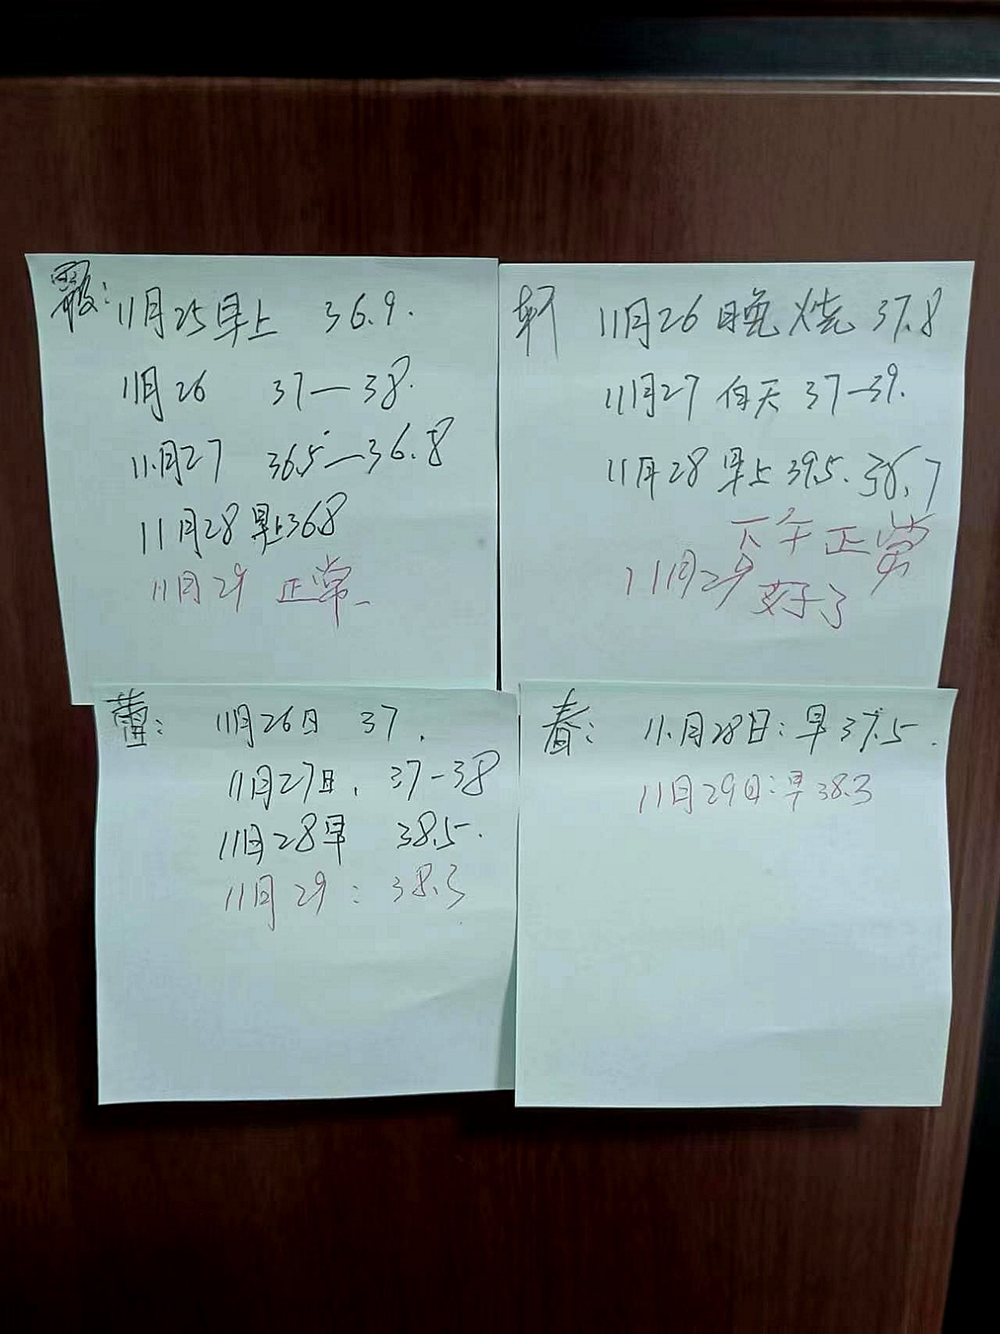 霞：11月25早上 36.9.
11月26 37—38.
11.月27 36.5—36.8
11月28早上36.8
11月29 正常
轩 11月26晚烧 37.8
11月27 白天 37—39.
11月28早上39.5. 36.7
下午正常
11月29 好了
蕾：11月26日 37.
11月27日. 37-38
11月28早 38.5.
11月29：38.3
春：11.月28日：早37.5.
11月29日：早38.3